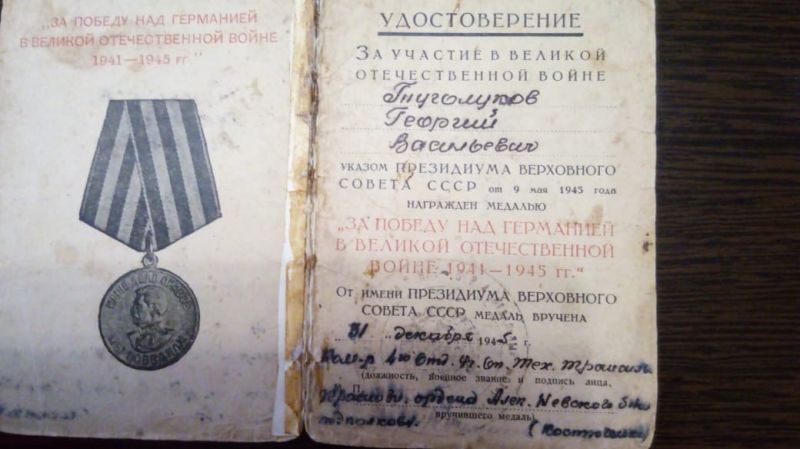 „ЗА ПОБЕДУ НАД ГЕРМАНИЕЙ
В ВЕЛИКОЙ ОТЕЧЕСТВЕННОЙ ВОЙНЕ
1941—1945 гг."
НАШЕ ДЕЛО ПРАВОЕ
МЫ ПОБЕДИЛИ
УДОСТОВЕРЕНИЕ
ЗА УЧАСТИЕ В ВЕЛИКОЙ
ОТЕЧЕСТВЕННОЙ ВОЙНЕ
Тнуголуков
Георгий
Васильевич
УКАЗОМ ПРЕЗИДИУМА ВЕРХОВНОГО
СОВЕТА СССР от 9 мая 1945 года
НАГРАЖДЕН МЕДАЛЬЮ
„ЗА ПОБЕДУ НАД ГЕРМАНИЕЙ
В ВЕЛИКОЙ ОТЕЧЕСТВЕННОЙ
ВОЙНЕ 1941—1945 гг."
От имени ПРЕЗИДИУМА ВЕРХОВНОГО
СОВЕТА СССР МЕДАЛЬ ВРУЧЕНА
„31" декабря 1945 г.
Ком-р 4го Отд. Тех.
(должность, военное звание и подпись лица,
ордена Алек. Невского
вручившего медаль)
подполков.